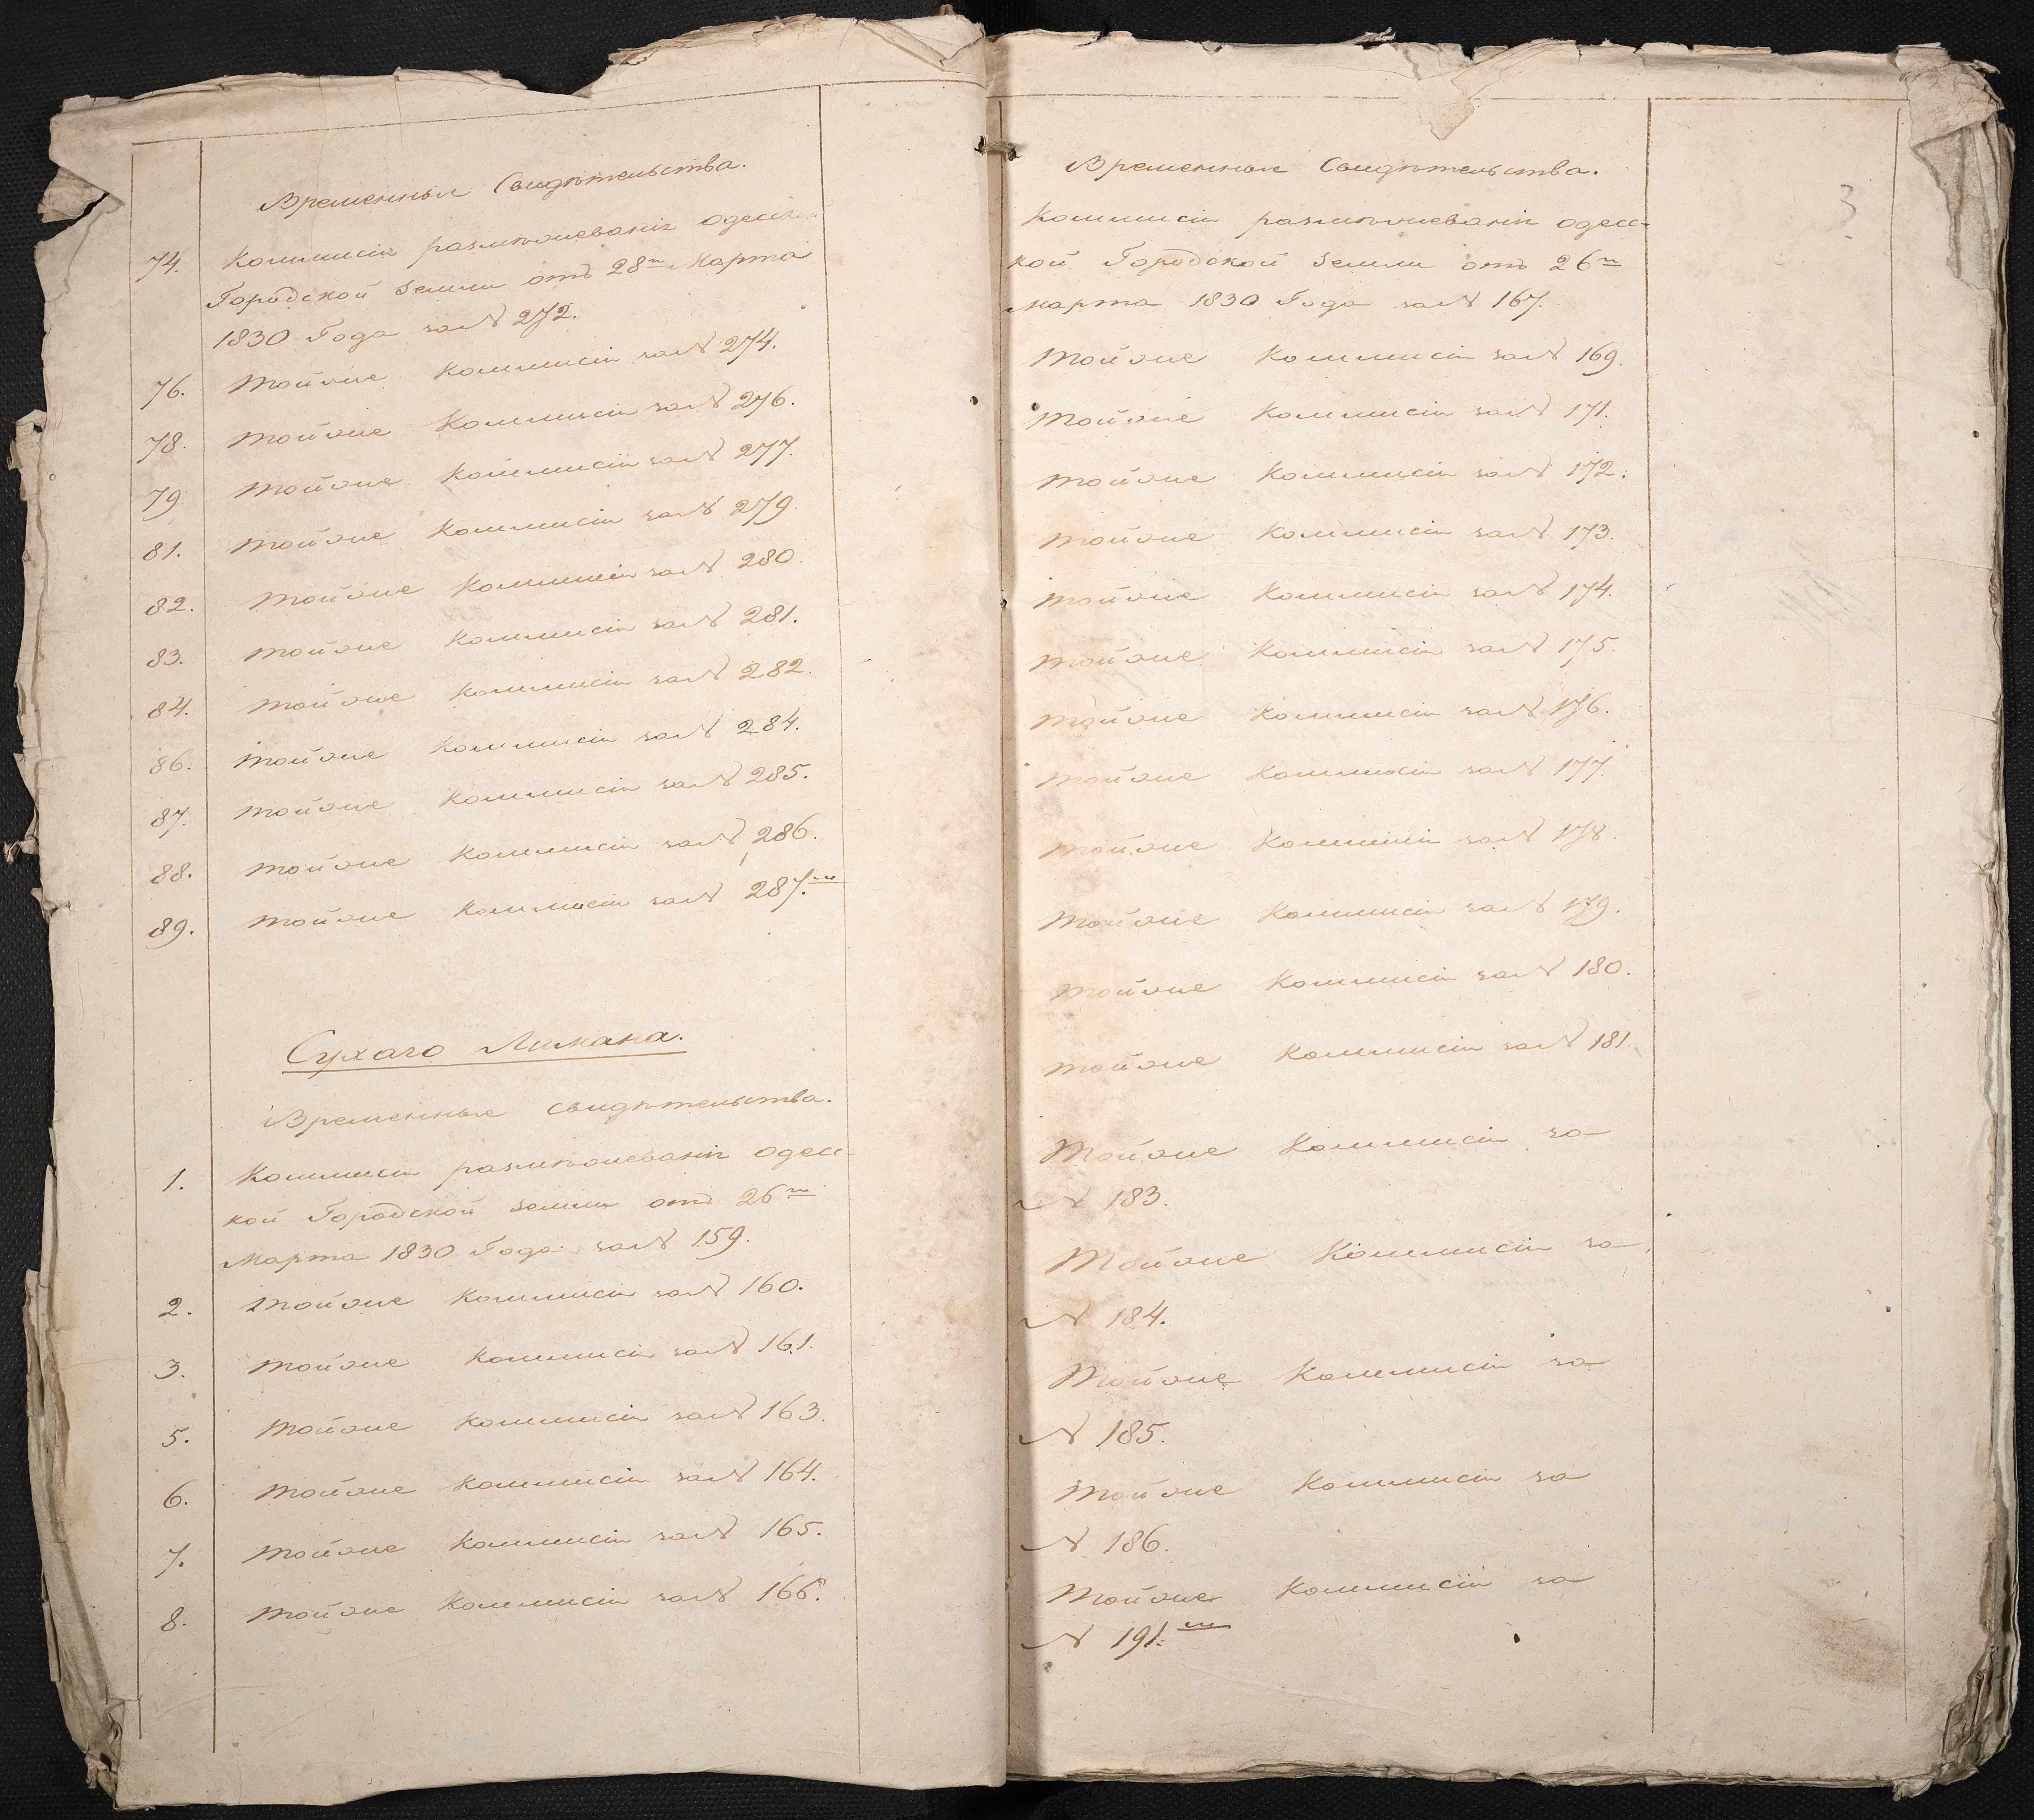 Временныя Свидѣтельства.
74. Коммисіи размѣжеванія Одесс
Городской Земли отъ 28го Марта
1830 Года за № 272.
76. Тойже Коммисіи за № 274.
78. Тойже Коммисіи за № 276.
79. Тойже Коммисіи за № 277.
81. Тойже Коммисіи за № 279.
82. Тойже Коммисіи за № 280.
83. Тойже Коммисіи за № 281.
84. Тойже Коммисіи за № 282.
86. Тойже Коммисіи за № 284.
87. Тойже Коммисіи за № 285.
88. Тойже Коммисіи за № 286.
89. Тойже Коммисіи за № 287.
Сухаго Лимана.
Временныя Свидѣтельства.
1. Коммисіи размѣжеванія Одесс-
кой Городской Земли отъ 26го
Марта 1830 Года за № 159.
2. Тойже Коммисіи за № 160.
3. Тойже Коммисіи за № 161.
5. Тойже Коммисіи за № 163.
6. Тойже Коммисіи за № 164.
7. Тойже Коммисіи за № 165.
8. Тойже Коммисіи за № 166.
3
Временныя Свидѣтельства.
Коммисіи размѣжеванія Одесс-
кой Городской Земли отъ 26го
Марта 1830 Года за № 167.
Тойже Коммисіи за № 169.
Тойже Коммисіи за № 171.
Тойже Коммисіи за № 172.
Тойже Коммисіи за № 173.
Тойже Коммисіи за № 174.
Тойже Коммисіи за № 175.
Тойже Коммисіи за № 176.
Тойже Коммисіи за № 177.
Тойже Коммисіи за № 178.
Тойже Коммисіи за № 179.
Тойже Коммисіи за № 180.
Тойже Коммисіи за № 181.
Тойже Коммисіи за
№ 183.
Тойже Коммисіи за
№ 184.
Тойже Коммисіи за
№ 185.
Тойже Коммисіи за
№ 186.
Тойже Коммисіи за
№ 191.